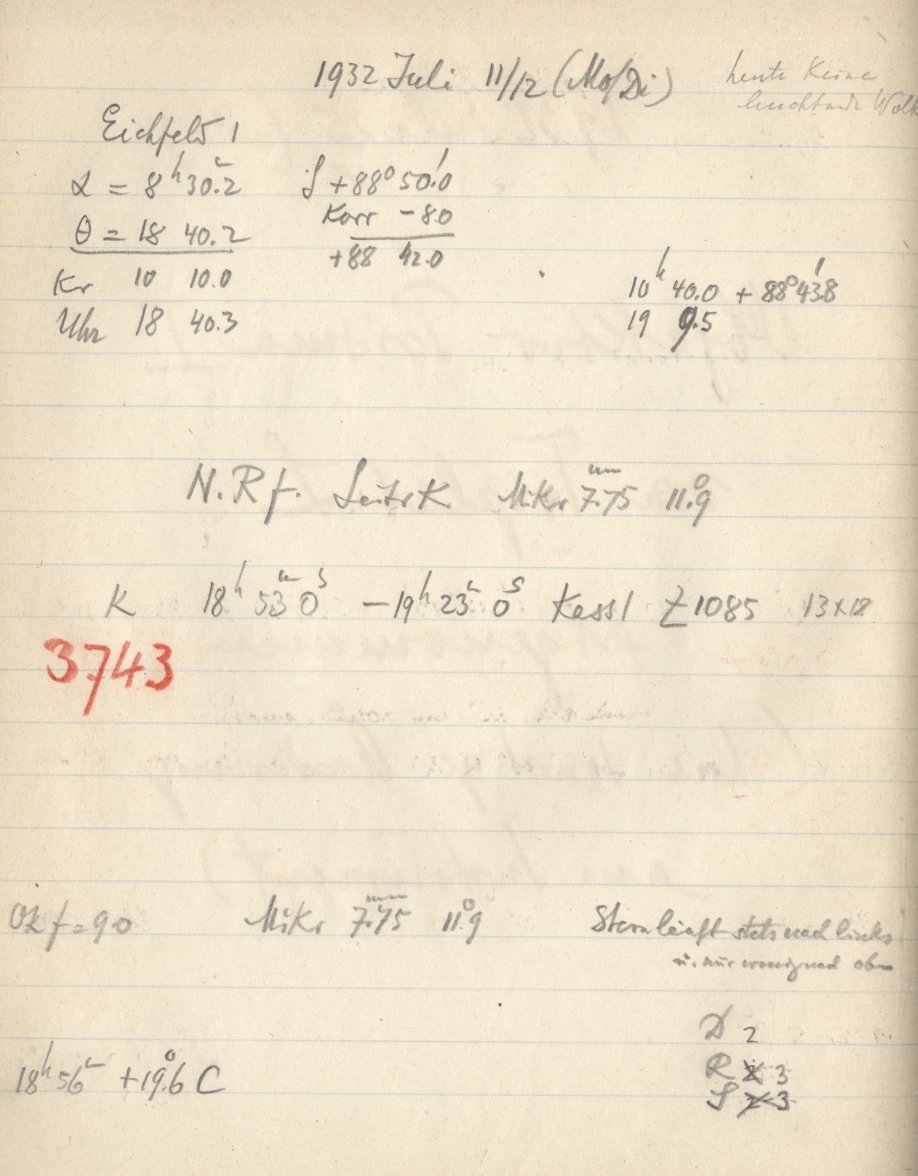 1932 Juli 11/12 (Mo/Di)
heute Keine
leuchtende Wolk
Eichfeld 1
α = 8ʰ 30.2ᵐ δ +88° 50.0′
θ = 18 40.2 Korr - 8.0
+88 42.0
Kr 10 10.0
Uhr 18 40.3
10ʰ 40.0 + 88° 43.8′
19 9.5
N.Rf. LeitrK Mikr 7.75ᵐᵐ 11.°9
K 18ʰ 53ᵐ 0ˢ - 19ʰ 23ᵐ 0ˢ Kass1 Z1085 13x18
3743
Ok f=90 Mikr 7.75ᵐᵐ 11.°9 Stern läuft stets nach links
u. nur wenig nach oben
D 2
R 2 3
S 2 3
18ʰ 56ᵐ +19.°6 C